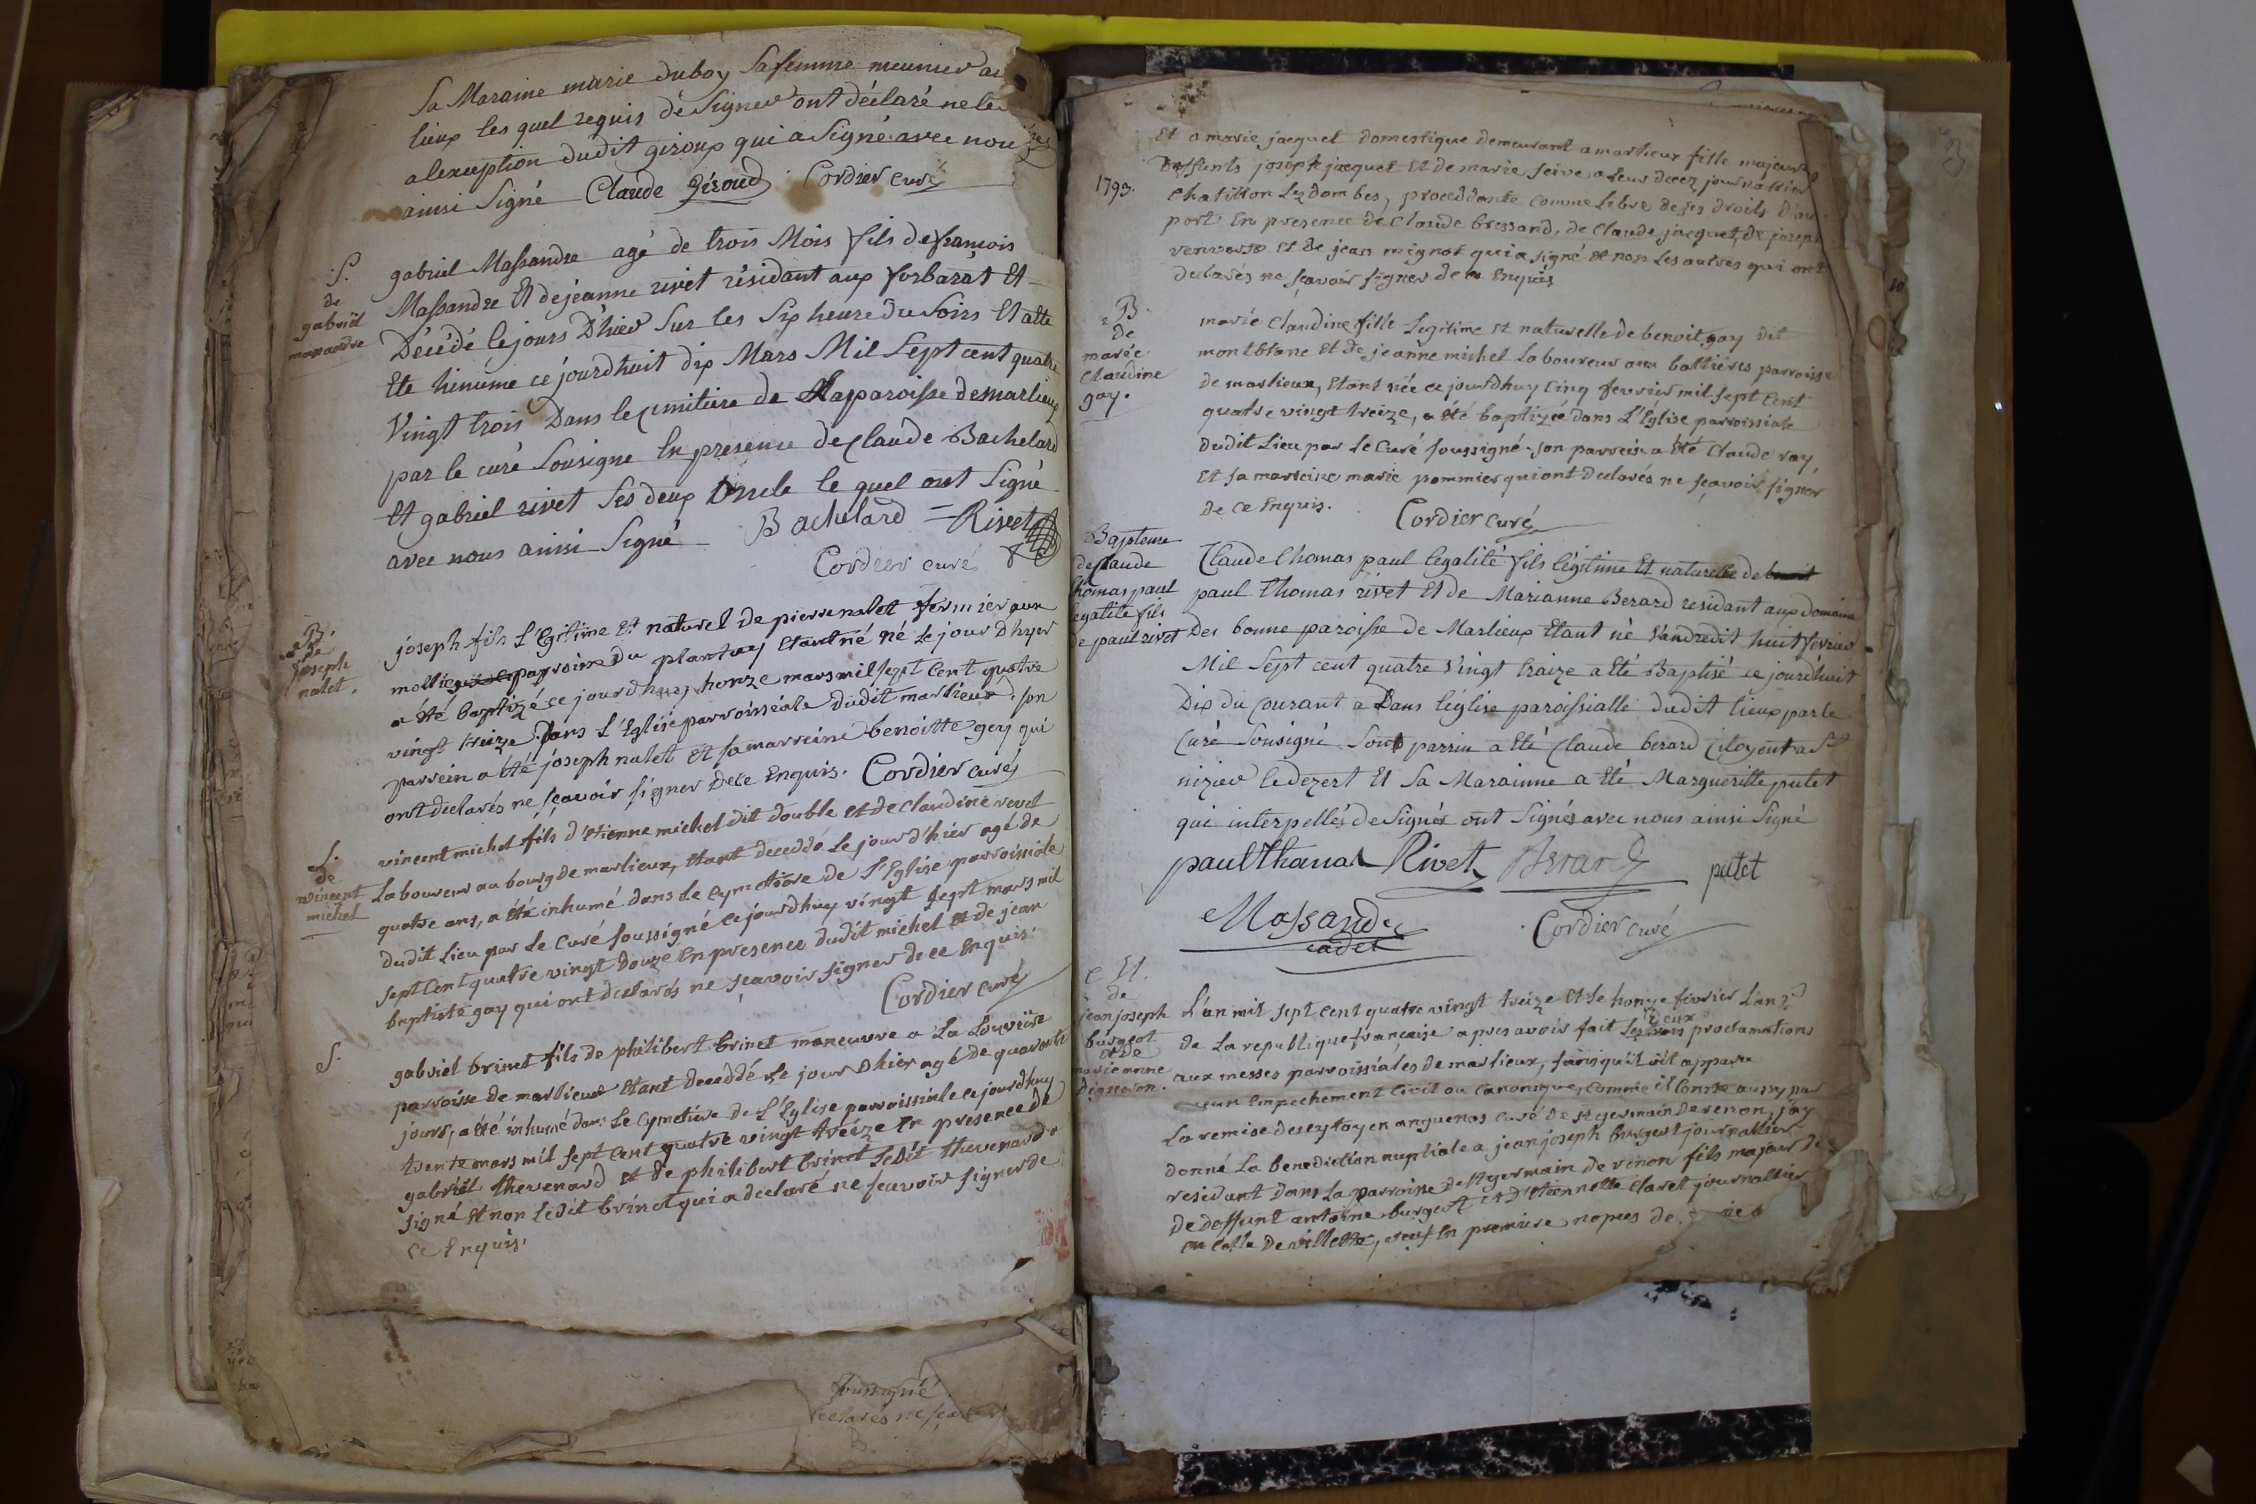 Sa Maraine marie duboy Sa femme meunier au
lieux les quel requis de Signer ont déclaré ne le
a lexception dudit giroux qui a Signé avec nou
ainsi Signé Claude Géroud Cordier curé
S.
de
gabriel
massandre
gabriel Massandre agé de trois Mois fils de francois
Massandre Et de jeanne rivet résidant aux forbarat Et
Décédé le jours D'hier Sur les Six heure du Soirs Et atte
Ete hinumé ce jourdhuit dix Mars Mil Sept cent quatre
Vingt trois Dans le Cimitiere de La paroisse de marlieux
par le curé Sousigne En presence de Claude Bachelard
Et gabriel rivet Ses deux Oncle le quel ont Signé
avec nous ainsi Signé Bachelard = Rivet
Cordier curé
B.
de
joseph
nalet.
joseph fils L'Egitime Et naturel de pierre nalet fermier aux
parroisse Du plantay Etant né né Le jour D'hyer
a été baptizé ce jourd'huy honze mars mil sept Cent quatre
vingt treize Dans L'Eglise parroissiale dudit marlieux. son
parrein a été joseph nalet Et sa marreine benoitte gay qui
ont declarés ne sçavoir signer De ce Enquis. Cordier curé
S.
de
vincent
michel
vincent michel fils d'Etienne michel dit double et de Claudine revel
Laboureur au bourg de marlieux, Etant deceddé Le jour d'hier agé de
quatre ans, a été inhumé dans Le cymetière de L'Eglise parroissiale
dudit Lieu par Le Curé soussigné ce jourdhuy vingt sept mars mil
sept Cent quatre vingt douze En presence dudit michel Et de jean
baptiste gay qui ont declarés ne sçavoir signer de ce Enquis.
Cordier curé
S.
gabriel brinet fils de philibert brinet manœuvre a La Louviere
parroisse de marlieux Etant deceddé Le jour D'hier agé de quarante
jours, a été inhumé dans Le Cymetiere de L'Eglise parroissiale ce jourdhuy
trente mars mil sept Cent quatre vingt treize En presence de
gabriel thevenard Et de philibert brinet Ledit thevenard a
signé Et non Ledit brinet qui a declaré ne sçavoir signer de
ce Enquis.
soussigné
declarés ne sçavoir
1793.
Et a marie jacquet domestique demeurant a marlieux fille majeure
Deffunts joseph jacquet Et de marie seive a Leur decez journallier
Chatillon Lez dombes, proceddante comme Libre de ses droits
port En presence de Claude bressand, de Claude jacquet, de joseph
Et de jean mignot qui a signé Et non Les autres qui ont
declarés ne sçavoir signer de ce Enquis
B.
de
marie
Claudine
gay.
marie Claudine fille Legitime Et naturelle de benoit gay dit
montblanc Et de jeanne michel Laboureur aux battieres parroisse
de marlieux, Etant née ce jourdhuy cinq fevrier mil sept Cent
quatre vingt treize, a été baptizée dans L'Eglise parroissiale
dudit Lieu par Le Curé soussigné. son parrein a été Claude ray
Et sa marreine marie pommier qui ont declarés ne sçavoir signer
de ce Enquis. Cordier curé
Bapteme
de Claude
thomas paul
legalité fils
de paul rivet
Claude thomas paul legalité fils légitime Et naturelle de benoit
paul thomas rivet Et de Marianne Berard residant aux domaine
Des bonne paroisse de Marlieux Etant né Vandredit huit fevrier
Mil Sept cent quatre Vingt traize a Eté Baptisé ce jourdhuit
Dix du Courant a Dans léglise paroissialle dudit lieux par le
Curé Sousigné Sont parrin a Eté Claude berard Citoyent a St
nizier le dezert Et Sa Marainne a Eté Margueritte putet
qui interpellés de Signés ont Signés avec nous ainsi Signé
paul Thomas Rivet Berard putet
Massandre
cadet
Cordier curé
Et.
de
jean joseph
burgeot
et de
marie anne
L'an mil sept Cent quatre vingt treize Et Le honze fevrier L'an 2
de La republique française apres avoir fait Les deux proclamations
aux messes parroissiales de marlieux, sans qu'il ait apparu
aucun Empechement Civil ou Canonique, Comme il Conste aussy par
La remise de curé de st germain de renon, j'ay
donné La benediction nuptiale a jean joseph burgeot journallier
residant dans La parroisse de st germain de renon fils majeur de
de deffunt antoine burgeot Et d'Etiennette Claret journallier
en Celle de villette, veuf En premiere nopces de